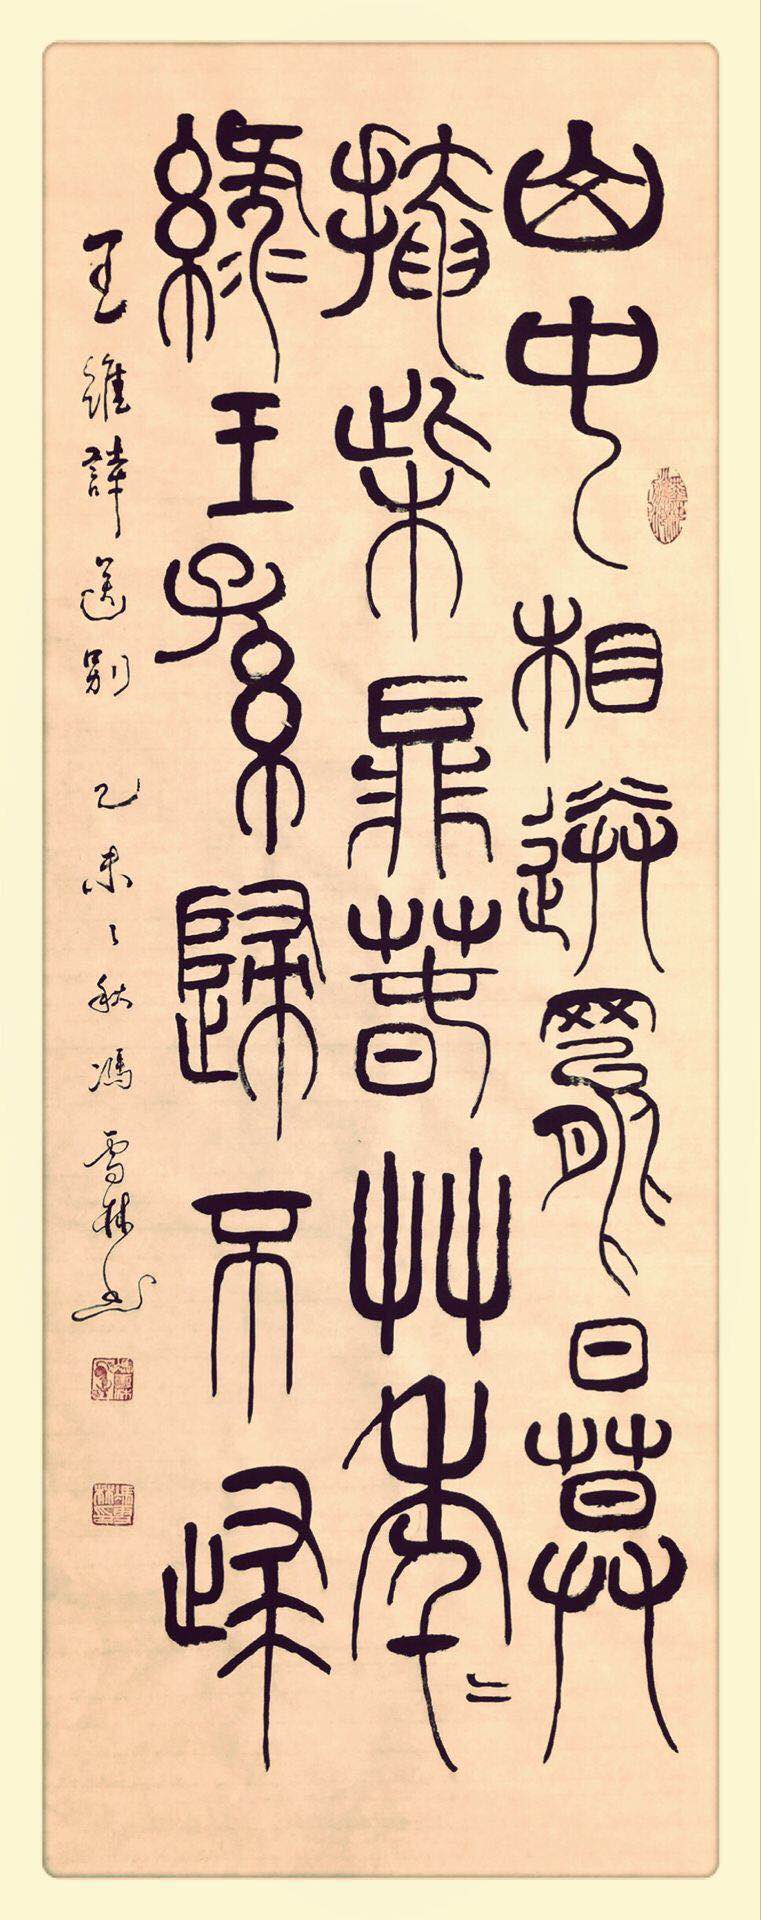 山中相送罷日暮
掩柴扉春草年〻
綠王孫歸不歸
王維詩送别 乙未之秋馮雪林书